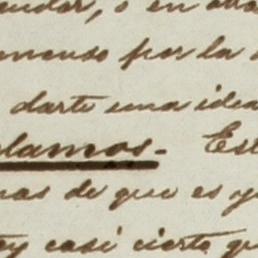 endar, o en otra
menso por la
darte una idea
lamos. Est
mas de que es y
ey casi cierto qu